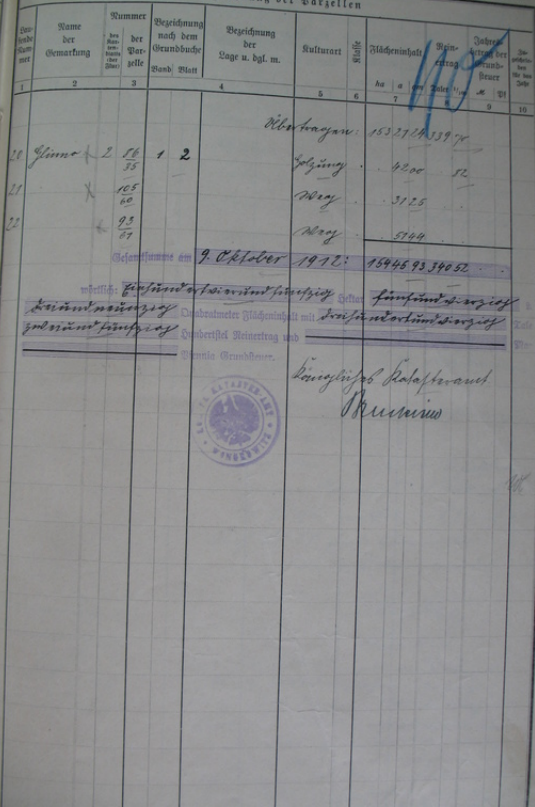 der Parzellen
Lau-
fende
Num-
mer
Name
der
Gemarkung
Nummer
der
Par-
zelle
Bezeichnung
nach dem
Grundbuche
Band Blatt
Bezeichnung
der
Lage u. dgl. m.
Kulturart
Klasse
Flächeninhalt
ha a qm
Rein-
ertrag
Taler
Jahres-
betrag der
Grund-
steuer
M Pf
1 2 3 4 5 6 7 8 9 10
Übertragen: 153 21 24 339
20 2 86/35 1 2 Holzung 42 00 82
21 105/60 Weg 31 25
22 93/61 Weg 51 44
Gesamtsumme am 9. Oktober 1912: 154 45 93 340 52
wörtlich: Einhundertvierundfünfzig Hektar fünfundvierzig
dreiundneunzig Quadratmeter Flächeninhalt mit dreihundertundvierzig
zweiundfünfzig Hundertstel Reinertrag und
Grundsteuer.
Königliches Katasteramt
KATASTER-AMT
WONGROWITZ